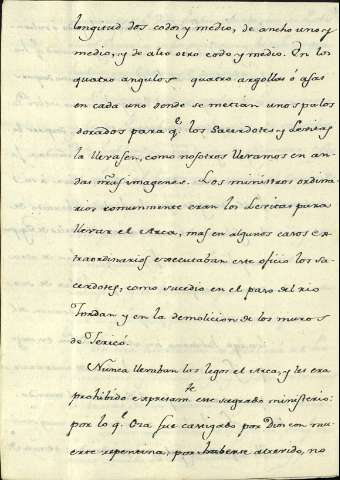 longitud dos codos y medio, de ancho uno y
medio, y de alto otro codo y medio. En los
quatro angulos quatro argollas ò asas
en cada uno donde se metian unos palos
dorados para q.e los Sacerdotes y Levitas
la llevasen, como nosotros llevamos en an-
das nras imagenes. Los ministros ordina-
rios comunmente eran los Levitas para
llevar el Arca, mas en algunos casos ex-
traordinarios executaban este oficio los sa-
cerdotes, como sucedio en el paso del rio
Jordan y en la demolicion de los muros
de Jericó.
Nunca llevaban los legos el Arca, y les era
prohibido expresam.te este sagrado ministerio:
por lo q.e Oza fue castigado por Dios con mu-
erte repentina, por haberse atrevido, no